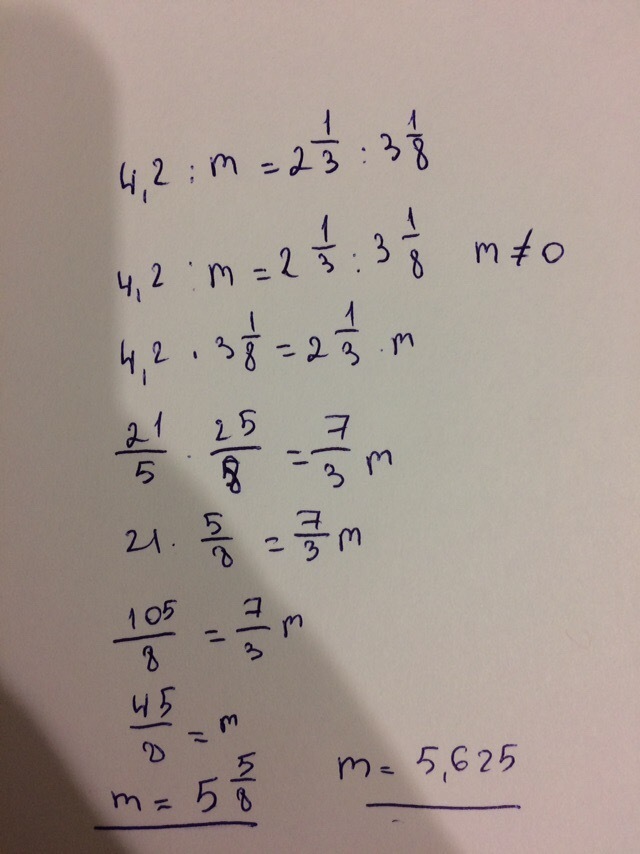 4,2 : m = 2 1/3 : 3 1/8
4,2 : m = 2 1/3 : 3 1/8 m ≠ 0
4,2 · 3 1/8 = 2 1/3 · m
21/5 · 25/8 = 7/3 m
21 · 5/8 = 7/3 m
105/8 = 7/3 m
45/8 = m
m = 5 5/8 m = 5,625